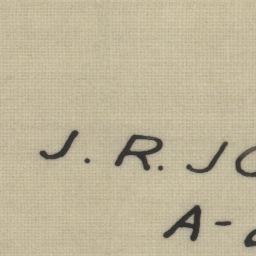 J. R. JO
A-